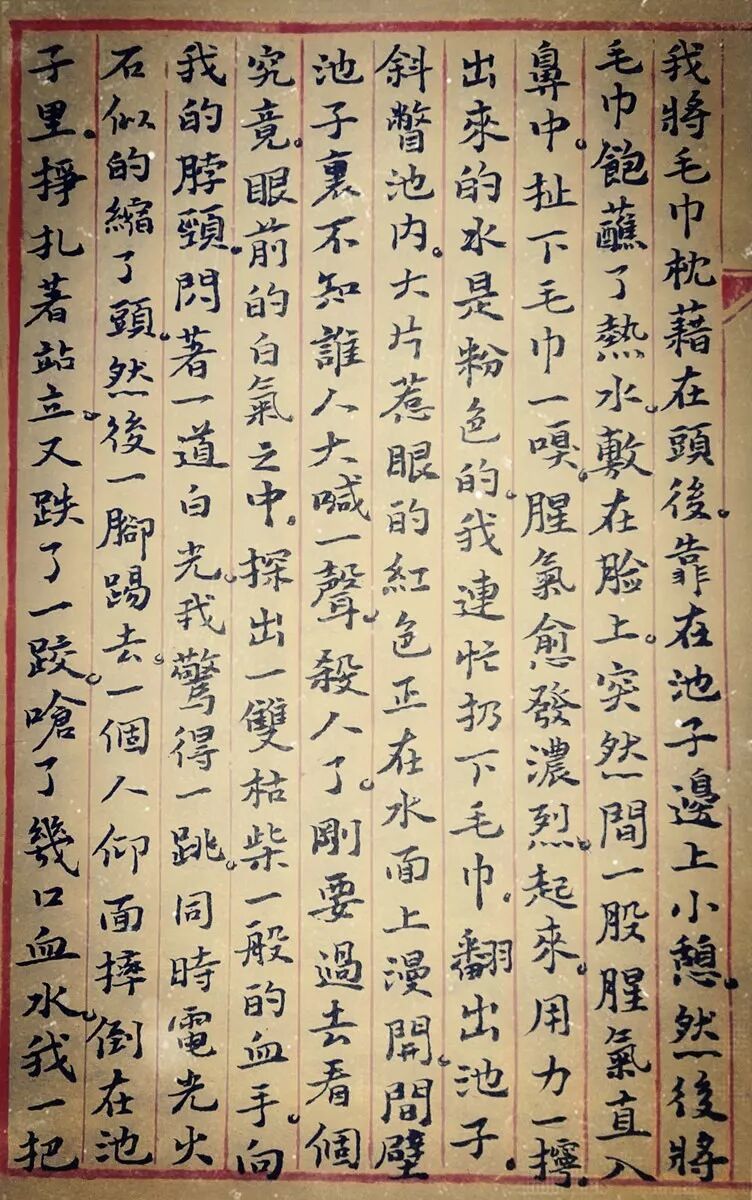 我將毛巾枕藉在頭後。靠在池子邊上小憩。然後將
毛巾飽蘸了熱水。敷在臉上。突然間一股腥氣直入
鼻中。扯下毛巾一嗅。腥氣愈發濃烈。起來。用力一擰。
出來的水是粉色的。我連忙扔下毛巾。翻出池子。
斜瞥池內。大片惹眼的紅色正在水面上漫開。間壁
池子裏不知誰人大喊一聲。殺人了。剛要過去看個
究竟。眼前的白氣之中。探出一雙枯柴一般的血手。向
我的脖頸。閃著一道白光。我驚得一跳。同時電光火
石似的縮了頭。然後一腳踢去。一個人仰面摔倒在池
子里。掙扎著站立。又跌了一跤。嗆了幾口血水。我一把